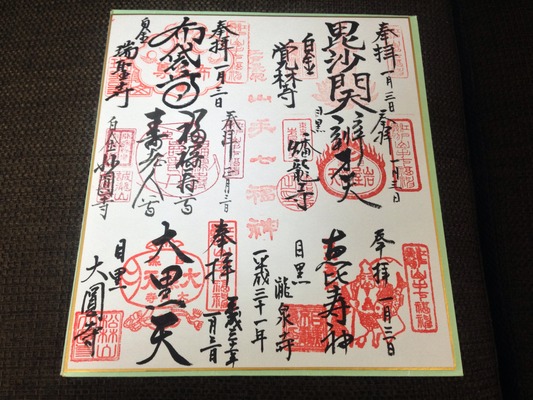 奉拝
一月三日
毘沙門天
白金
覚林寺
奉拝
一月三日
布袋尊
白金
瑞聖寺
奉拝
一月三日
辨才天
目黒
蟠龍寺
山手七福神
奉拝
一月三日
福禄寿尊
寿老人尊
白金
妙圓寺
奉拝
一月三日
恵比寿神
目黒
瀧泉寺
平成三十一年
奉拝
平成三十一年
一月三日
大黒天
目黒
大圓寺